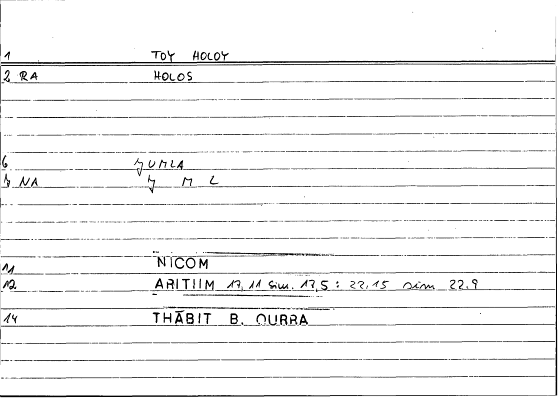 1 TOY HOLOY
2 RA HOLOS
6 ӡUMLA
ӡ NA ӡ M L
11 NICOM
12 ARITIIM 17,11 sim. 17,5 : 22,15 sim 22.9
14 THĀBIT B. QURRA